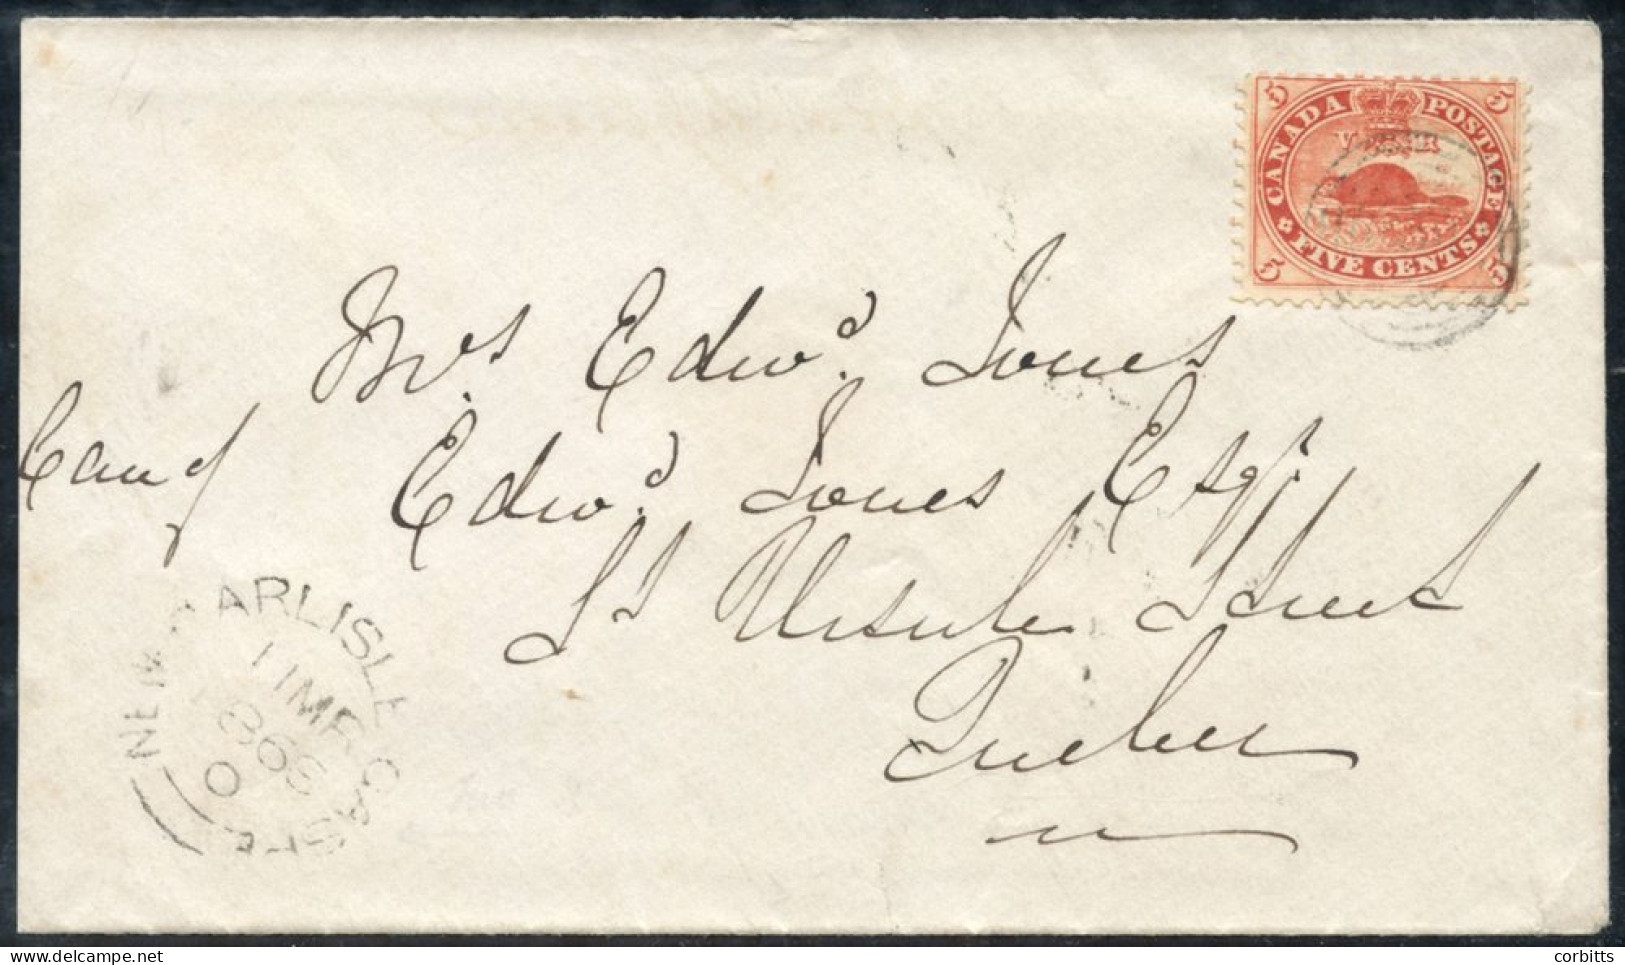 5 CANADA POSTAGE 5
FIVE CENTS
5
Mrs Edwd. Jones
Edwd. Jones Esqr.
St Ursule Street
Quebec
NEW CARLISLE
11 MR
delcampe.net
corbitts